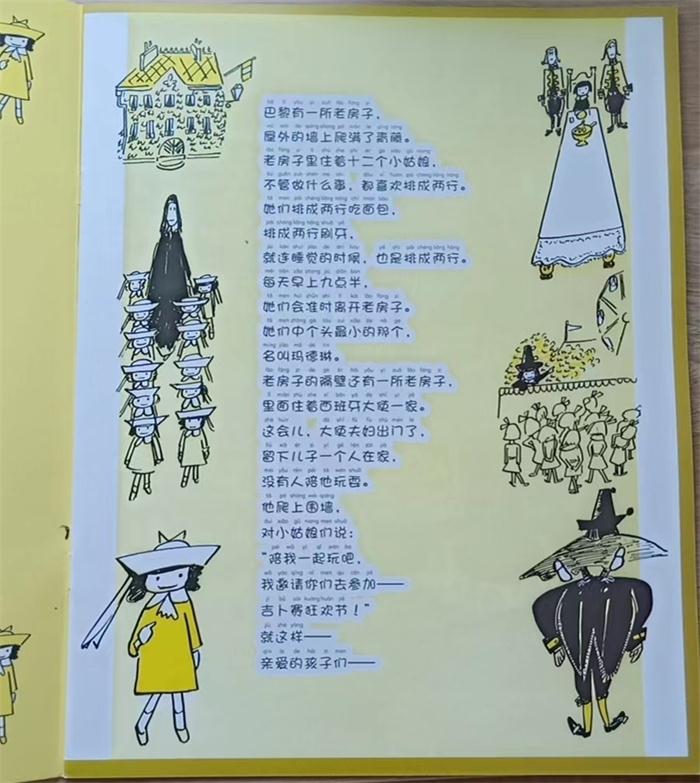 巴黎有一所老房子，
屋外的墙上爬满了青藤。
老房子里住着十二个小姑娘，
不管做什么事，都喜欢排成两行。
她们排成两行吃面包，
排成两行刷牙，
就连睡觉的时候，也是排成两行。
每天早上九点半，
她们会准时离开老房子。
她们中个头最小的那个，
名叫玛德琳。
老房子的隔壁还有一所老房子，
里面住着西班牙大使一家。
这会儿，大使夫妇出门了，
留下儿子一个人在家，
没有人陪他玩耍。
他爬上围墙，
对小姑娘们说：
“陪我一起玩吧，
我邀请你们去参加——
吉卜赛狂欢节！”
就这样——
亲爱的孩子们——